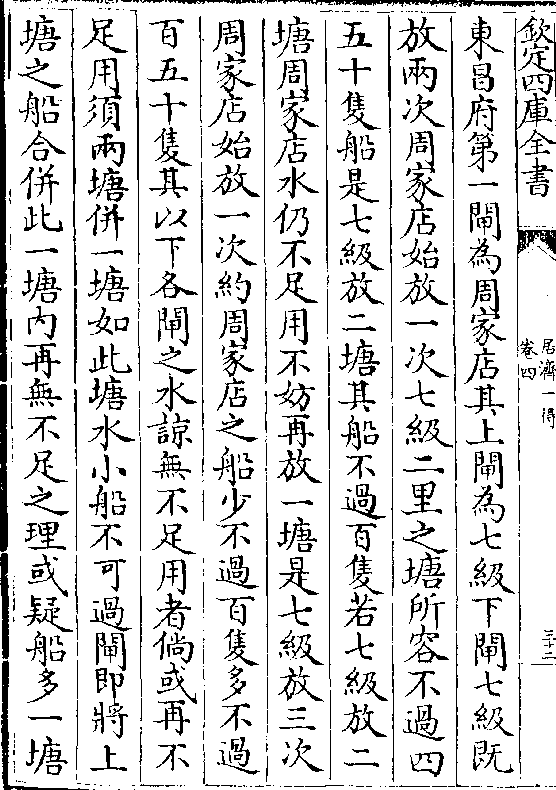 欽定四庫全書
居濟一得
卷四
三十二
東昌府第一閘為周家店其上閘為七級下閘七級既
放兩次周家店始放一次七級二里之塘所容不過四
五十隻船是七級放二塘其船不過百隻若七級放二
塘周家店水仍不足用不妨再放一塘是七級放三次
周家店始放一次約周家店之船少不過百隻多不過
百五十隻其以下各閘之水諒無不足用者倘或再不
足用須兩塘併一塘如此塘水小船不可過閘即將上
塘之船合併此一塘内再無不足之理或疑船多一塘